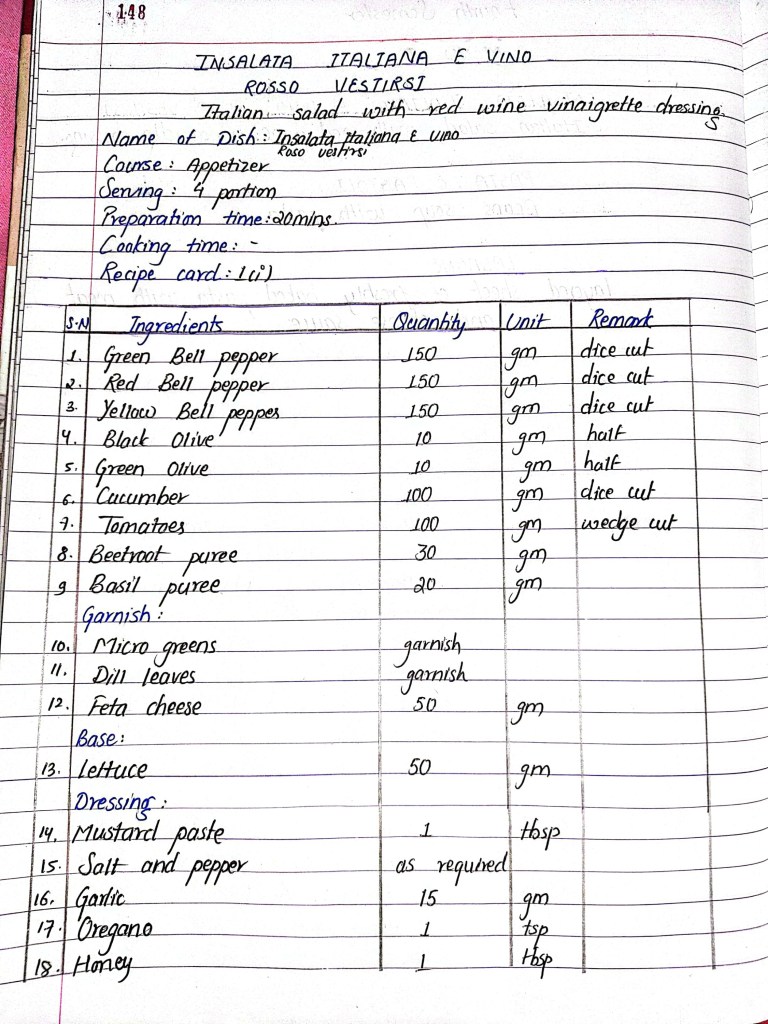 148
INSALATA ITALIANA E VINO
ROSSO VESTIRSI
Italian salad with red wine vinaigrette dressing
Name of Dish: Insalata Italiana E VINO
Roso vestirsi
Course: Appetizer
Serving: 4 portion
Preparation time: 20mins.
Cooking time: -
Recipe card: 1(i)
S.N Ingredients Quantity Unit Remark
1. Green Bell pepper 150 gm dice cut
2. Red Bell pepper 150 gm dice cut
3. Yellow Bell pepper 150 gm dice cut
4. Black Olive 10 gm half
5. Green Olive 10 gm half
6. Cucumber 100 gm dice cut
7. Tomatoes 100 gm wedge cut
8. Beetroot puree 30 gm
9 Basil puree 20 gm
Garnish:
10. Micro greens garnish
11. Dill leaves garnish
12. Feta cheese 50 gm
Base:
13. Lettuce 50 gm
Dressing:
14. Mustard paste 1 tbsp
15. Salt and pepper as required
16. Garlic 15 gm
17. Oregano 1 tsp
18. Honey 1 tbsp